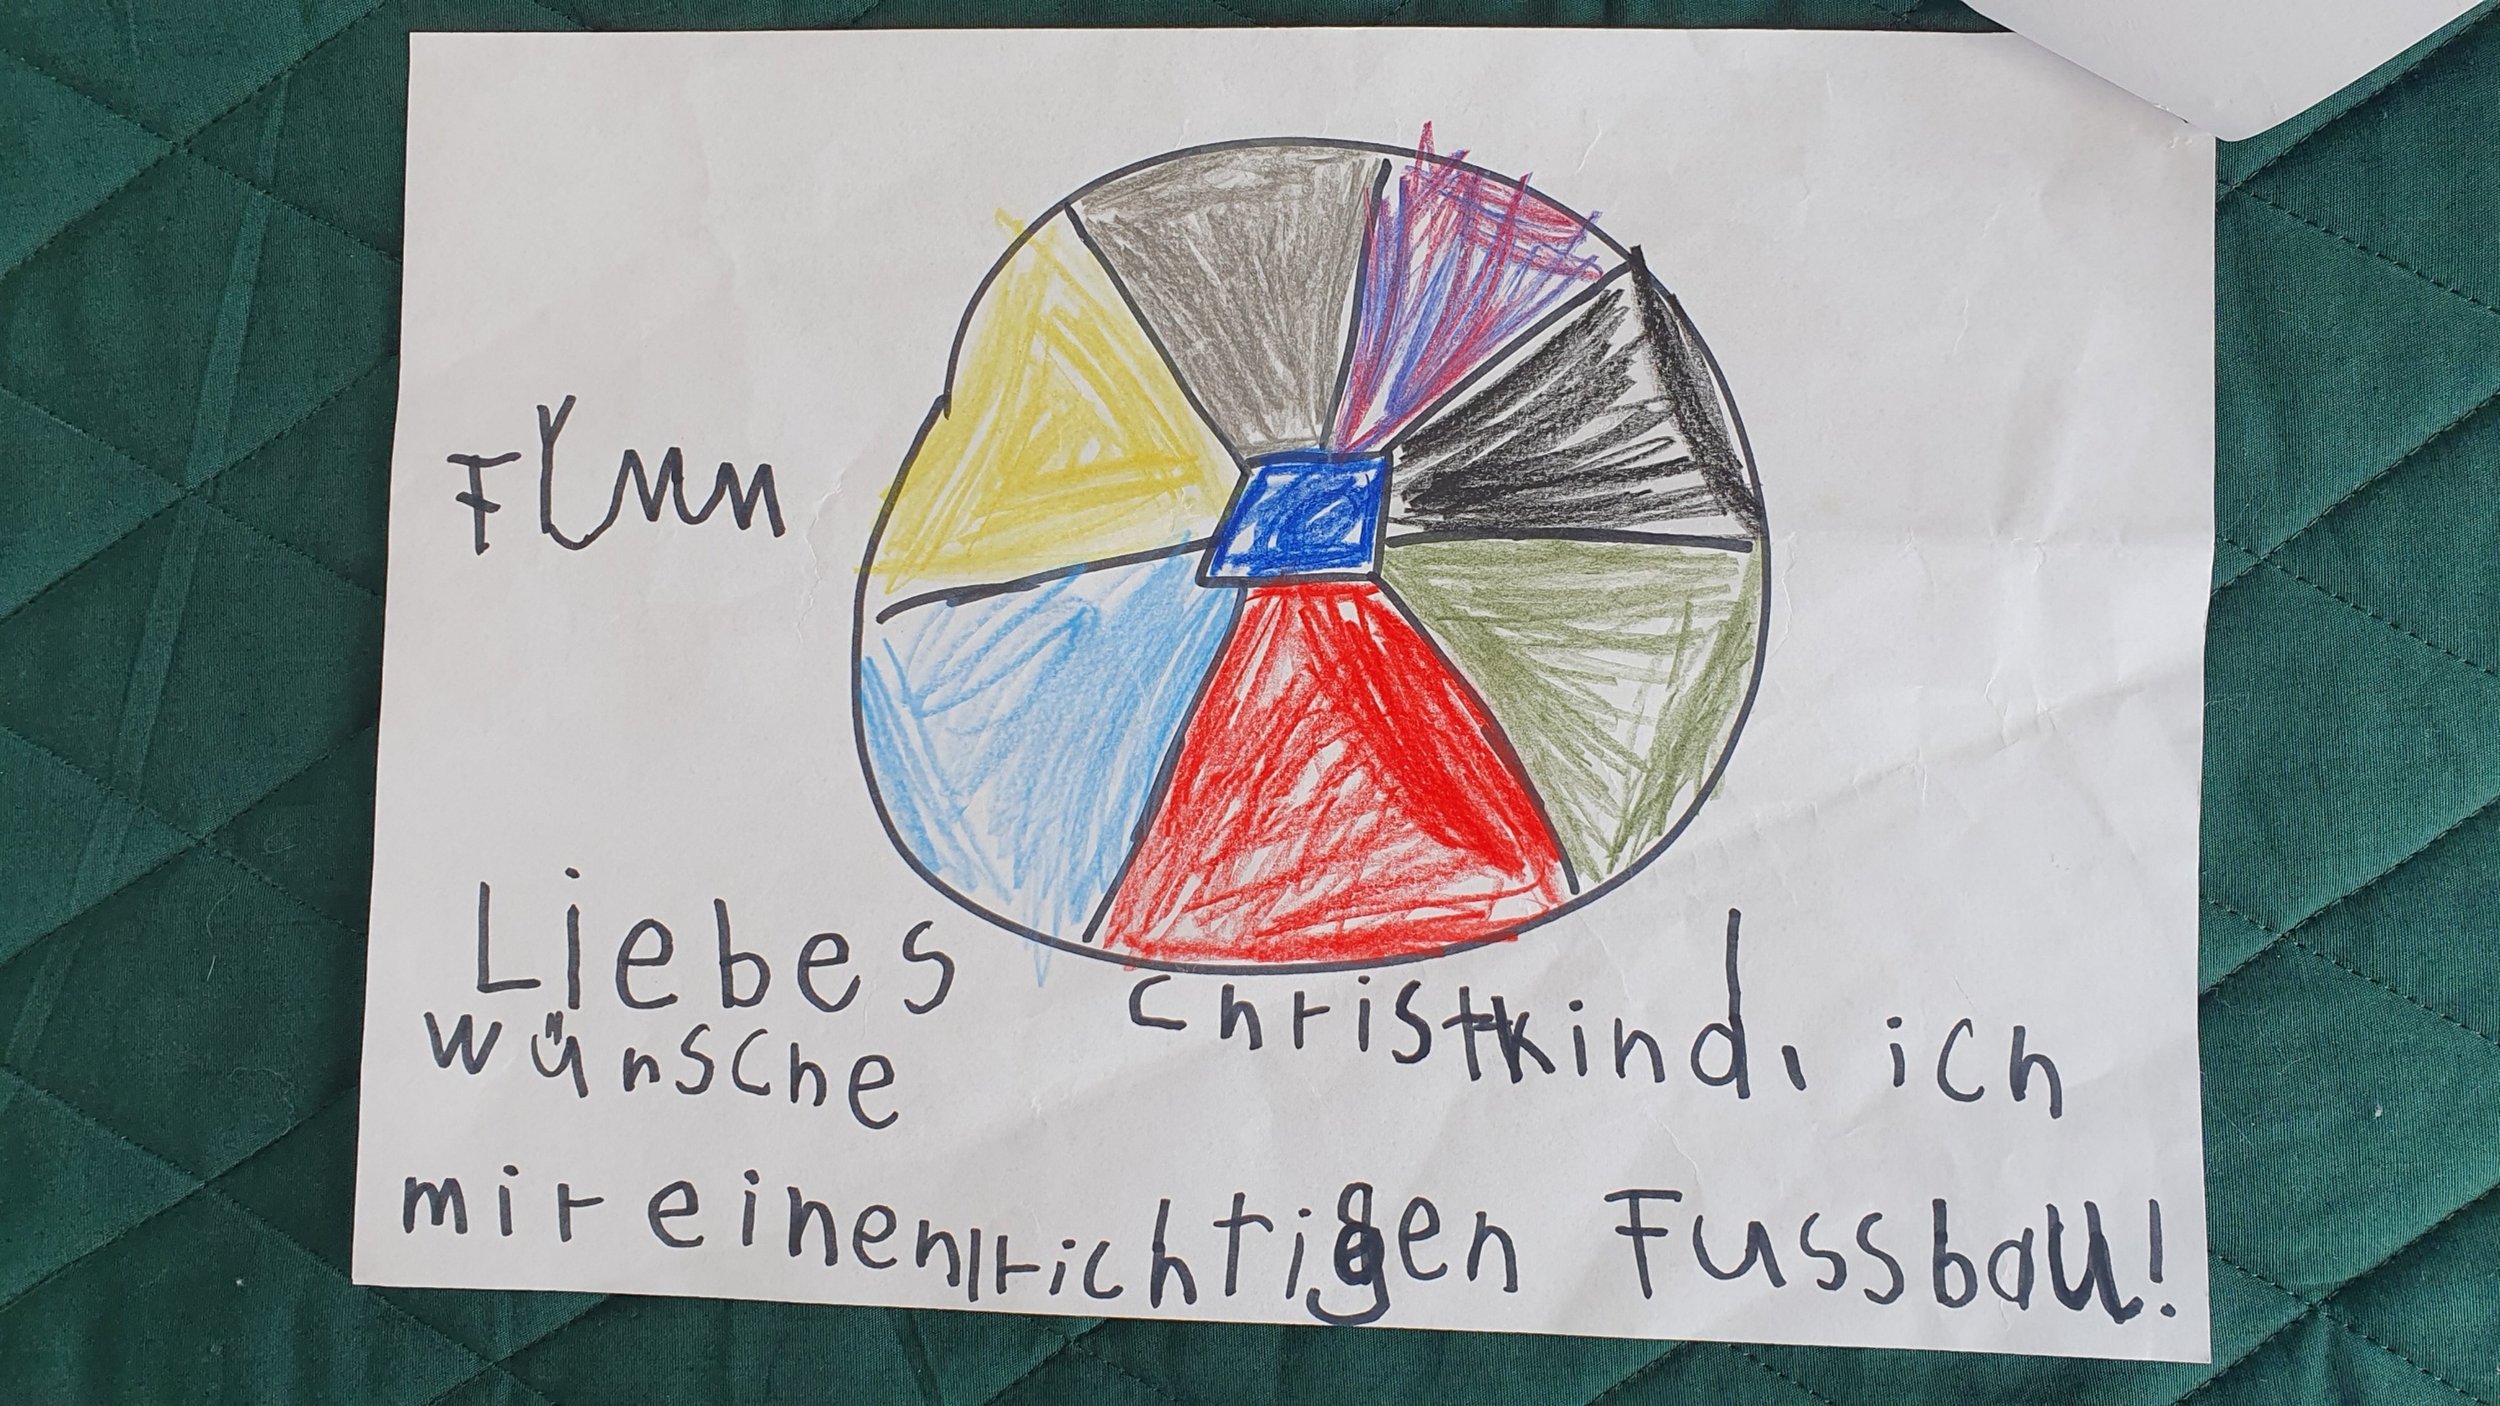 Flynn
Liebes Christkind, ich
wünsche
mir einen richtigen Fussball!